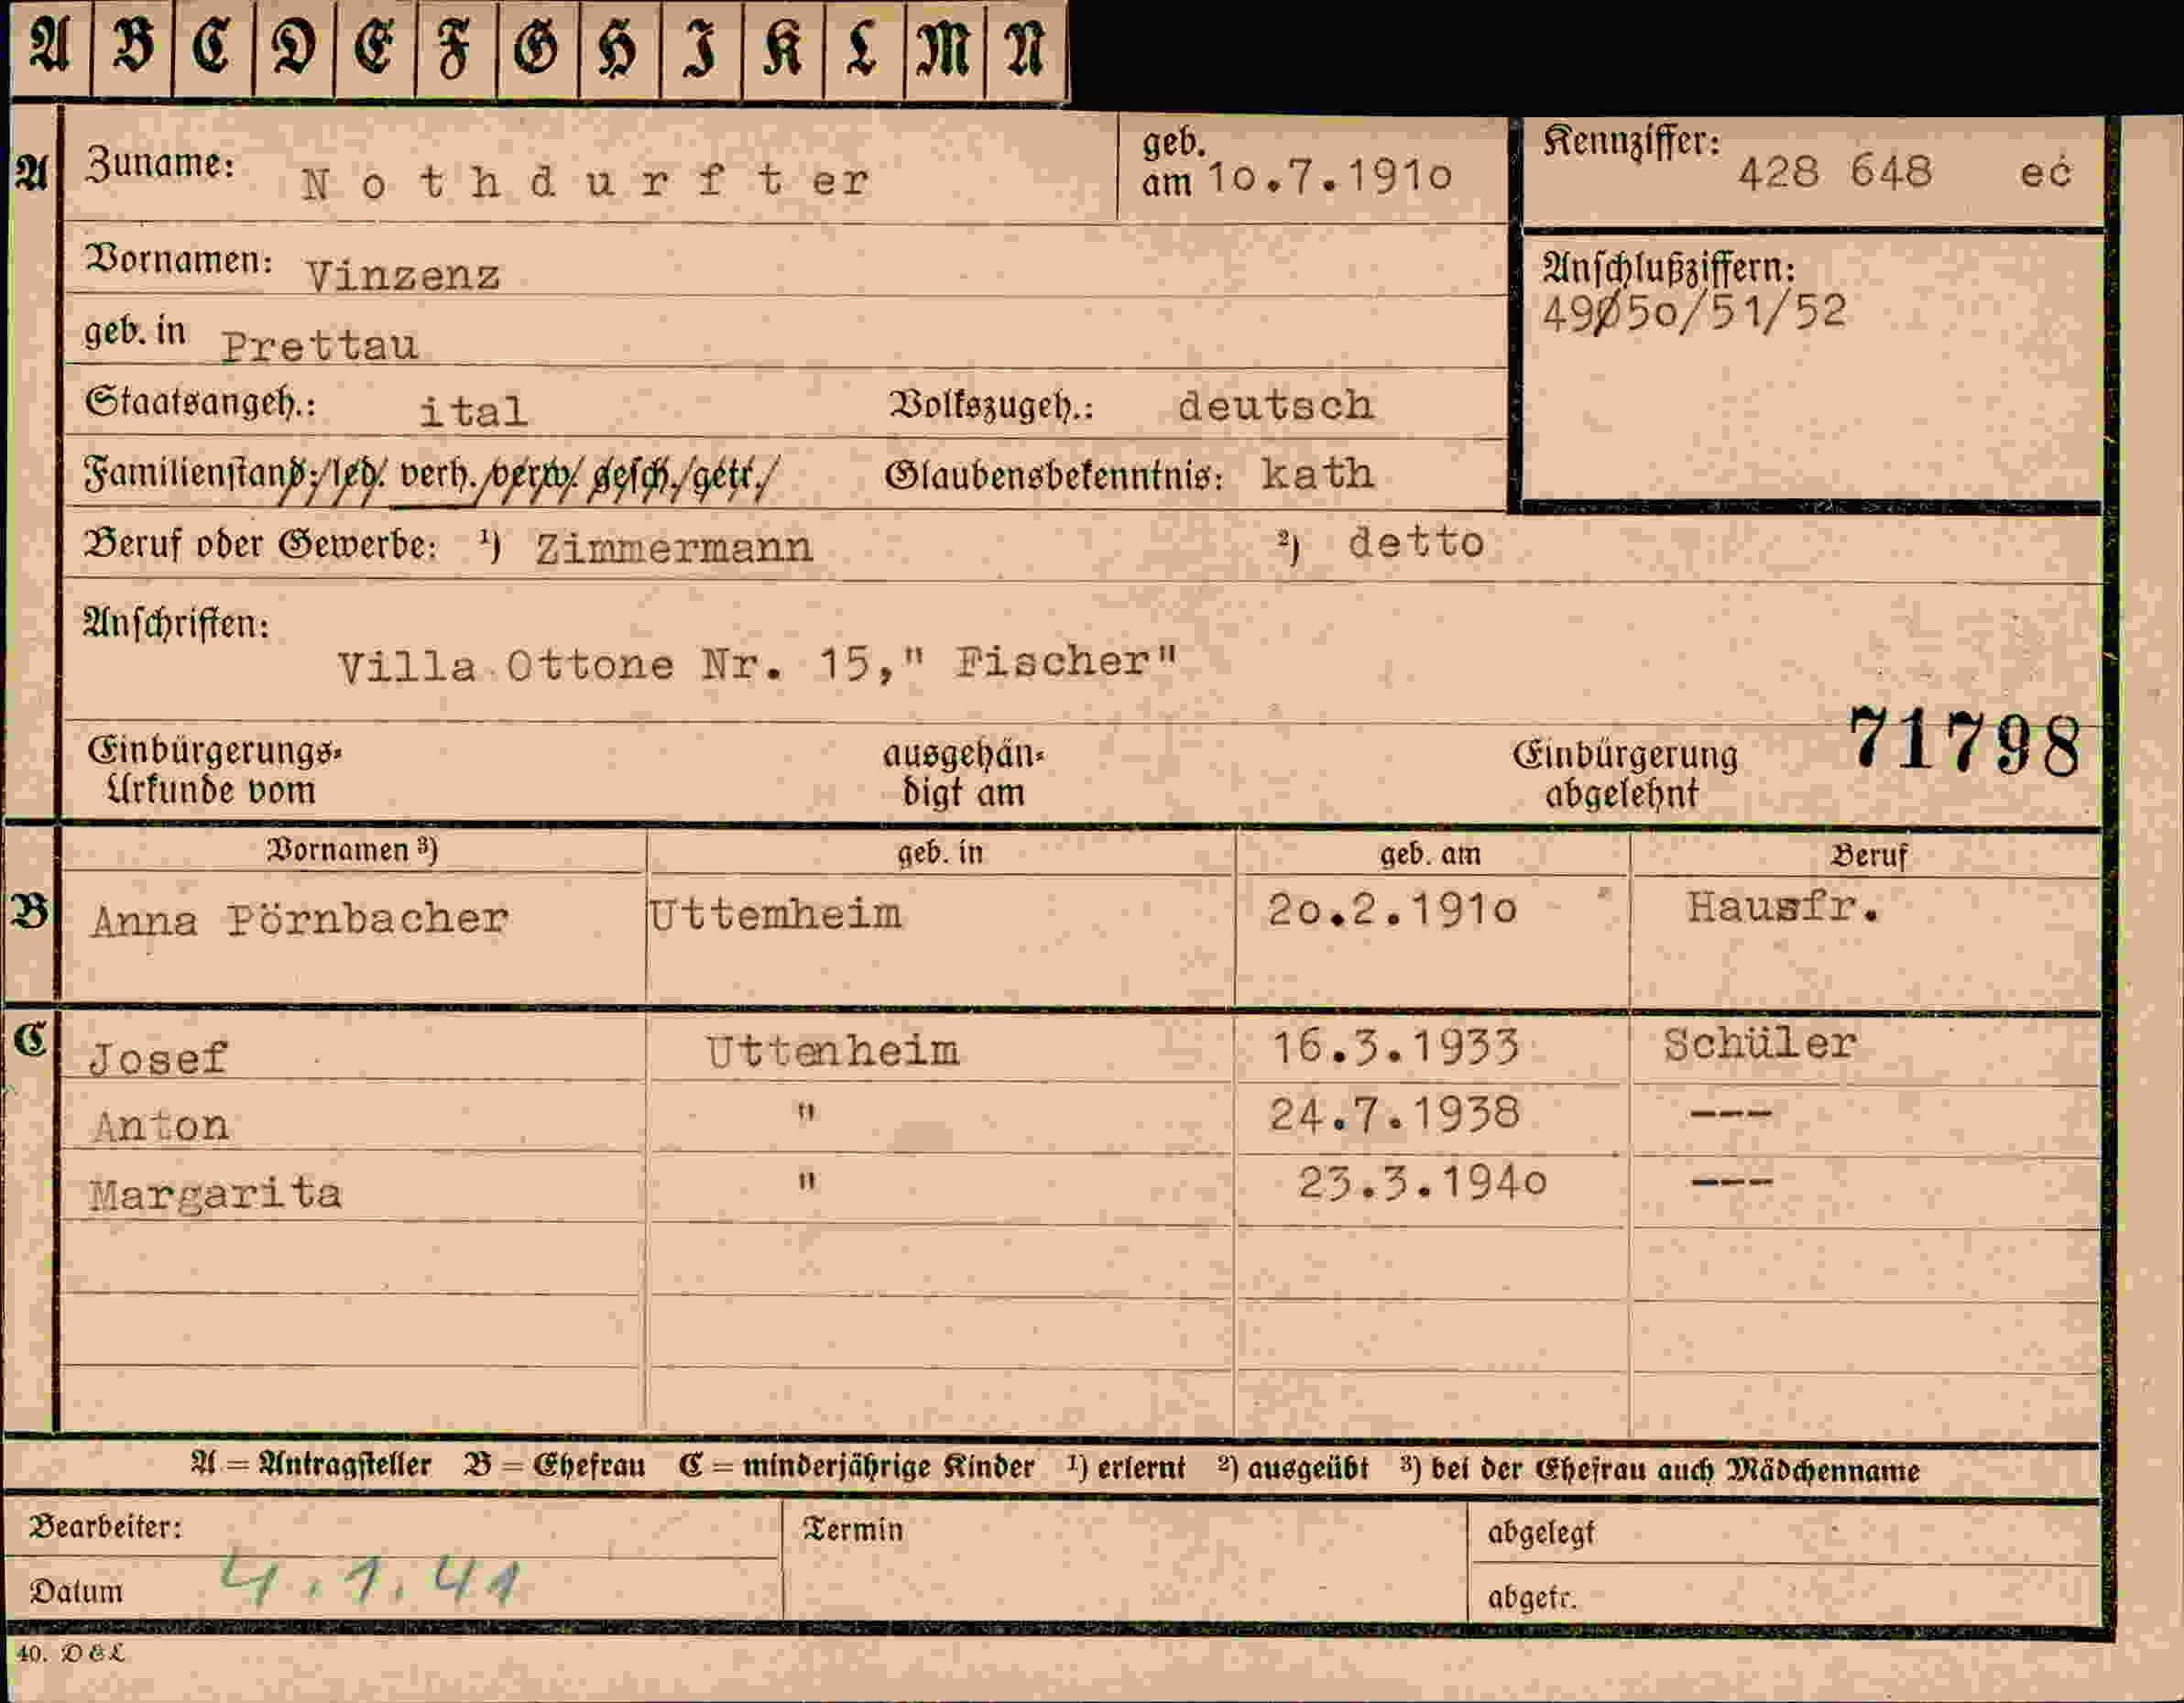 A B C D E F G H I K L M N
A Zuname: Nothdurfter geb. am 10.7.1910 Kennziffer: 428 648 ec
Vornamen: Vinzenz
Anschlußziffern:
49050/51/52
geb. in Prettau
Staatsangeh.: ital Volkszugeh.: deutsch
Familienstand: led. verh. verw. gesch. getr. Glaubensbekenntnis: kath
Beruf oder Gewerbe: ¹) Zimmermann ²) detto
Anschriften:
Villa Ottone Nr. 15," Fischer"
71798
Einbürgerungs- ausgehän- Einbürgerung
Urkunde vom digt am abgelehnt
Vornamen ³) geb. in geb. am Beruf
B Anna Pörnbacher Uttemheim 20.2.1910 Hausfr.
C Josef Uttenheim 16.3.1933 Schüler
Anton " 24.7.1938 ---
Margarita " 23.3.1940 ---
A = Antragsteller B = Ehefrau C = minderjährige Kinder ¹) erlernt ²) ausgeübt ³) bei der Ehefrau auch Mädchenname
Bearbeiter: Termin abgelegt
Datum 4.1.41 abgetr.
40. D&L